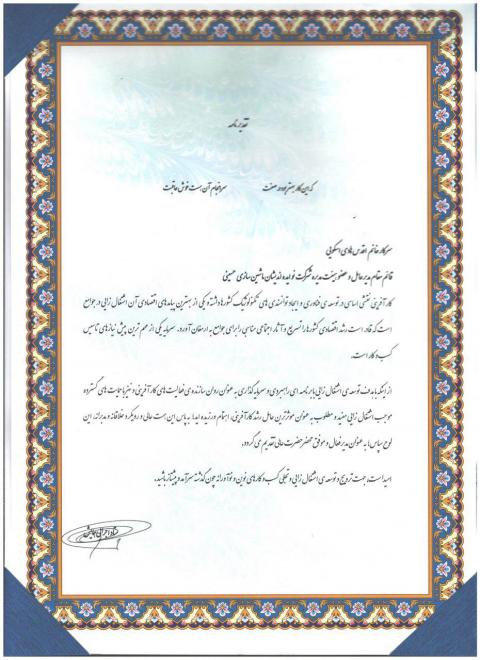 تقدیرنامه
که این کار بهتر بود و صنعت سرانجام آن هست خوش عاقبت
سرکار خانم اقدس هادی اسکویی
قائم مقام مدیر عامل و عضو هیئت مدیره شرکت نوایده اندیشان ماشین سازی حسینی
کارآفرینی نقشی اساسی در توسعه ی فناوری و ایجاد توانمندی های تکنولوژیک کشورها داشته و یکی از بهترین پیامدهای اقتصادی آن اشتغال زایی در جوامع
است که قادر است رشد اقتصادی کشورها را تسریع و آثار اجتماعی مناسبی را برای جوامع به ارمغان آورد، سرمایه یکی از مهم ترین پیش نیازهای تاسیس
کسب و کار است.
از اینکه با هدف توسعه ی اشتغال زایی با برنامه ای راهبردی و سرمایه گذاری به عنوان روان سازنده ی فعالیت های کارآفرینی و نیز با حمایت های گسترده
موجب اشتغال زایی مفید و مطلوب به عنوان موثرترین عامل رشد کارآفرینی، اهتمام ورزیده اید؛ به پاس این همت عالی و رویکرد خلاقانه و مدبرانه، این
لوح سپاس را به عنوان مدیر فعال و موفق محضر حضرت عالی تقدیم می گردد.
امید است جهت ترویج و توسعه ی اشتغال زایی و تجلی کسب و کارهای نوین و نوآورانه چون گذشته سرآمد و پیشتاز باشید.